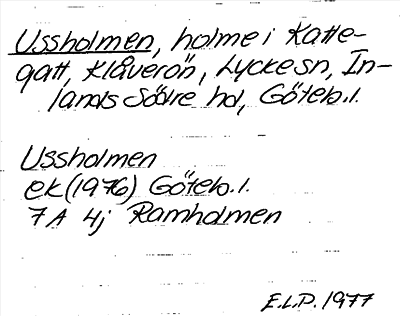 Ussholmen, holme i Katte-
gatt, Klåverön, Lycke sn, In-
lands Södre hd, Göteb. l.
Ussholmen
ek (1976) Göteb. l.
7A 4j Ramholmen
E.L.P. 1977